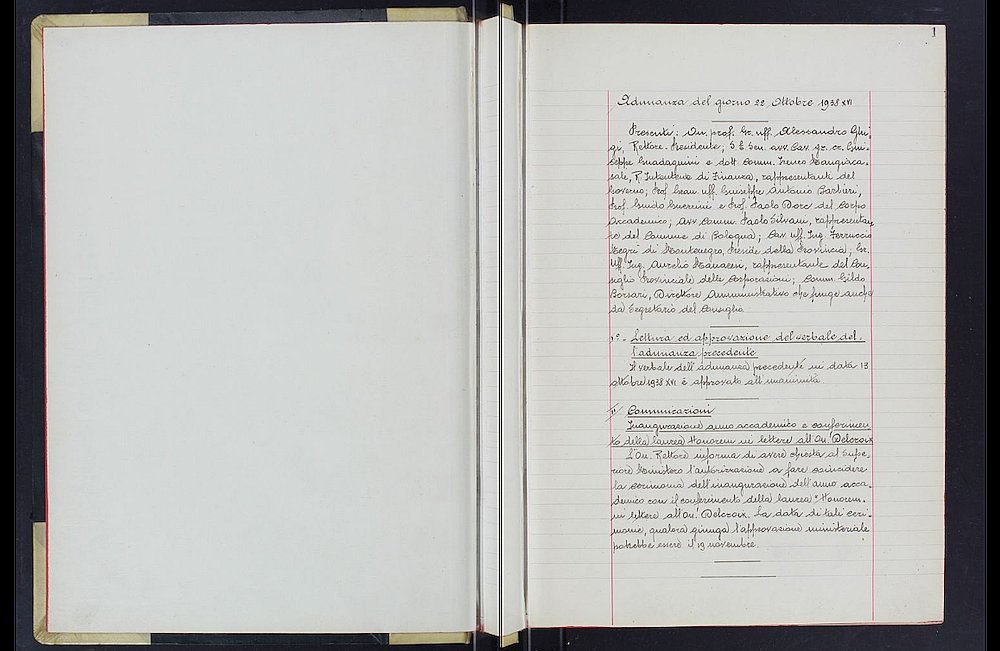 1
Adunanza del giorno 22 Ottobre 1938 XVI
Presenti: On. prof. Gr. uff. Alessandro Ghi-
gi, Rettore-Presidente; S. E. Sen. avv. Cav. gr. cr. Giu-
seppe Guadagnini e dott. Comm. Irenco Mangiaca-
sale, R. Intendente di Finanza, rappresentanti del
Governo; Prof. Gran. uff. Giuseppe Antonio Barbieri,
Prof. Guido Guerrini e Prof. Paolo Dore del Corpo
Accademico; Avv. Comm. Paolo Silvani, rappresentan-
te del Comune di Bologna; Cav. uff. Ing. Ferruccio
Negri di Montenegro, Preside della Provincia; Gr.
Uff. Ing. Aurelio Manaresi, rappresentante del Con-
siglio Provinciale delle Corporazioni; Comm. Gildo
Borsari, Direttore Amministrativo che funge anche
da Segretario del Consiglio.
1°- Lettura ed approvazione del verbale del-
l'adunanza precedente
Il verbale dell'adunanza precedente in data 13
ottobre 1938 XVI è approvato all'unanimità.
II Comunicazioni
Inaugurazione anno accademico e conferimen-
to della laurea Honorem in lettere all'On. Delcroix
L'On. Rettore informa di avere chiesta al Supe-
riore Ministero l'autorizzazione a fare coincidere
la cerimonia dell'inaugurazione dell'anno acca-
demico con il conferimento della laurea "Honorem
in lettere all'On. Delcroix. La data di tali ceri-
monie, qualora giunga l'approvazione ministeriale
potrebbe essere il 19 novembre.